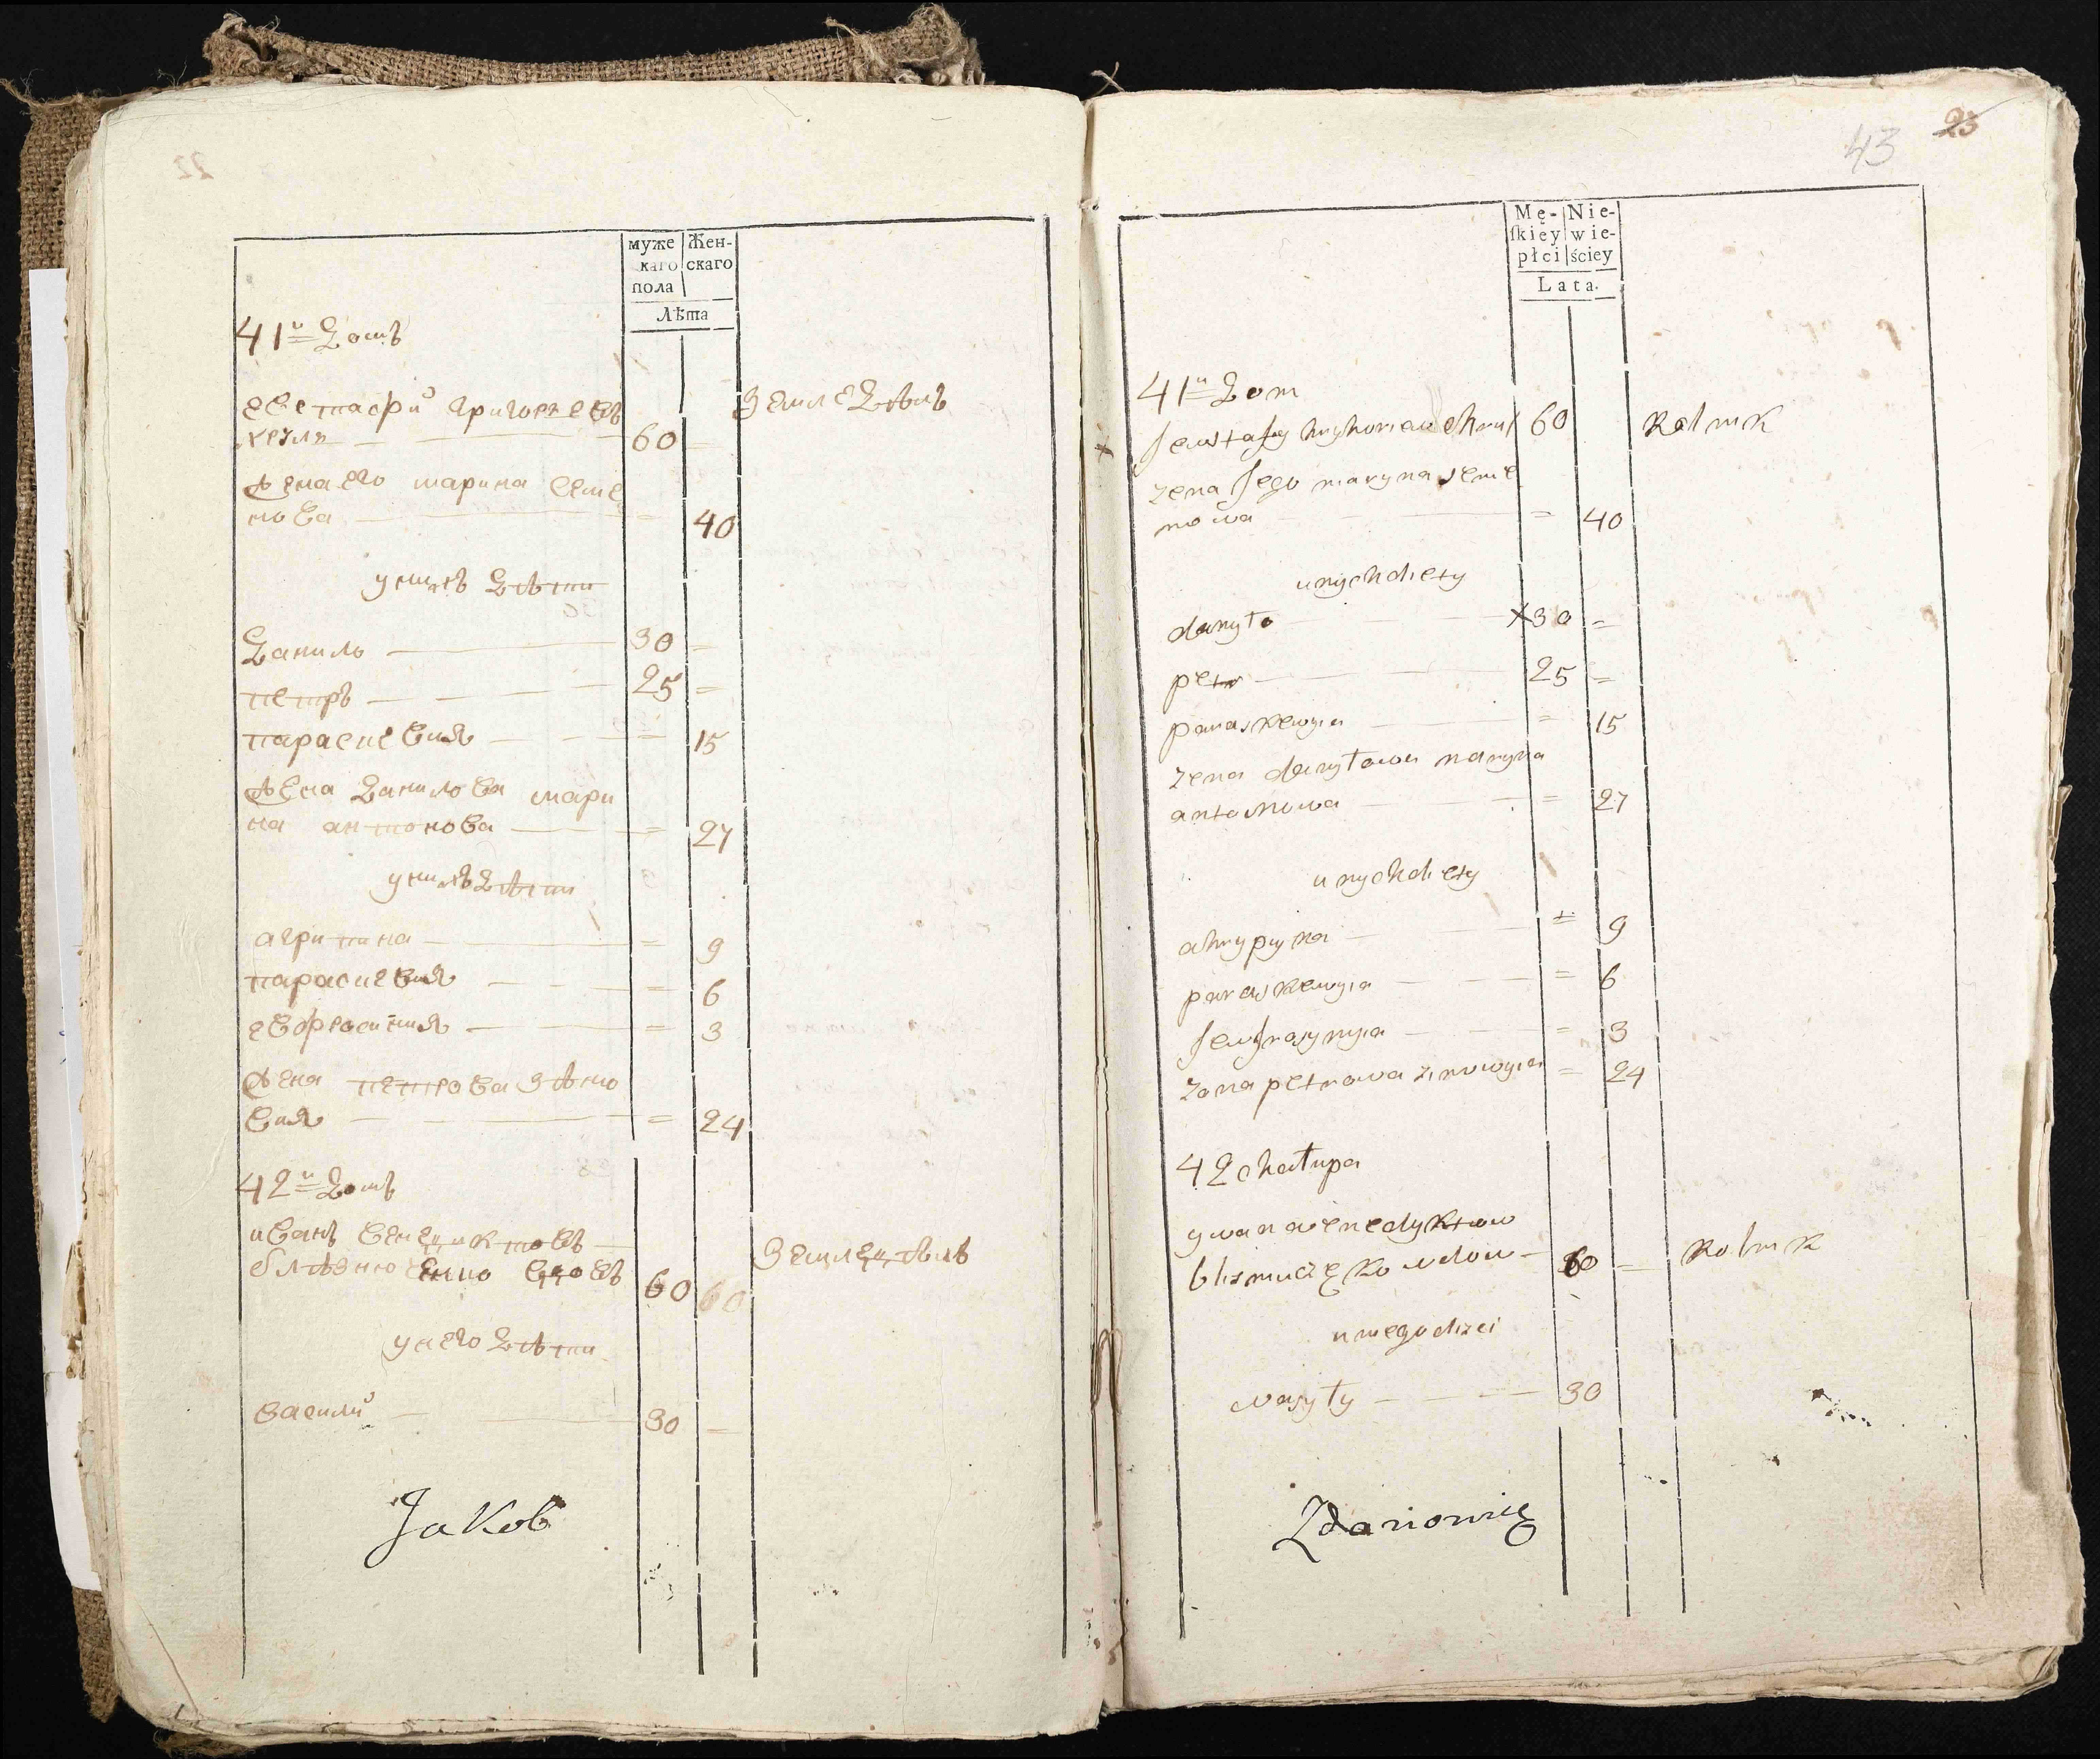 муже
каго
пола
Жен-
скаго
Лѣта
41й Домъ
евстафий григориевъ
60
земледѣлъ
жена его марина семе
нова 40
у нихъ дѣти
данило 30
петръ 25
параскевия 15
жена данилова мари
на антонова 27
у нихъ дѣти
агрипина 9
параскевия 6
евфросиния 3
жена петрова зѣно
вия 24
42й Домъ
иванъ венедиктовъ
вдовъ 60 60
земледѣлъ
у него дѣти
василий 30
Jakob
43
23
Mę-
ſkiey
płci
Nie-
wie-
ściey
Lata.
41й Dom
Jewstafy hryhoriew 60 Rolnik
zena Jego maryna seme
nowa 40
u nych diety
danyło X30
petr 25
paraskewyia 15
zena danyłowa maryna
antonowa 27
u nych diety
ahrypyna 9
paraskewyia 6
Jewfrasynyia 3
zona petrowa zinowyia 24
42 chałupa
ywan wenedyktow
wdow 60 Rolnik
u niego dzieci
wasyły 30
Zdanowicz